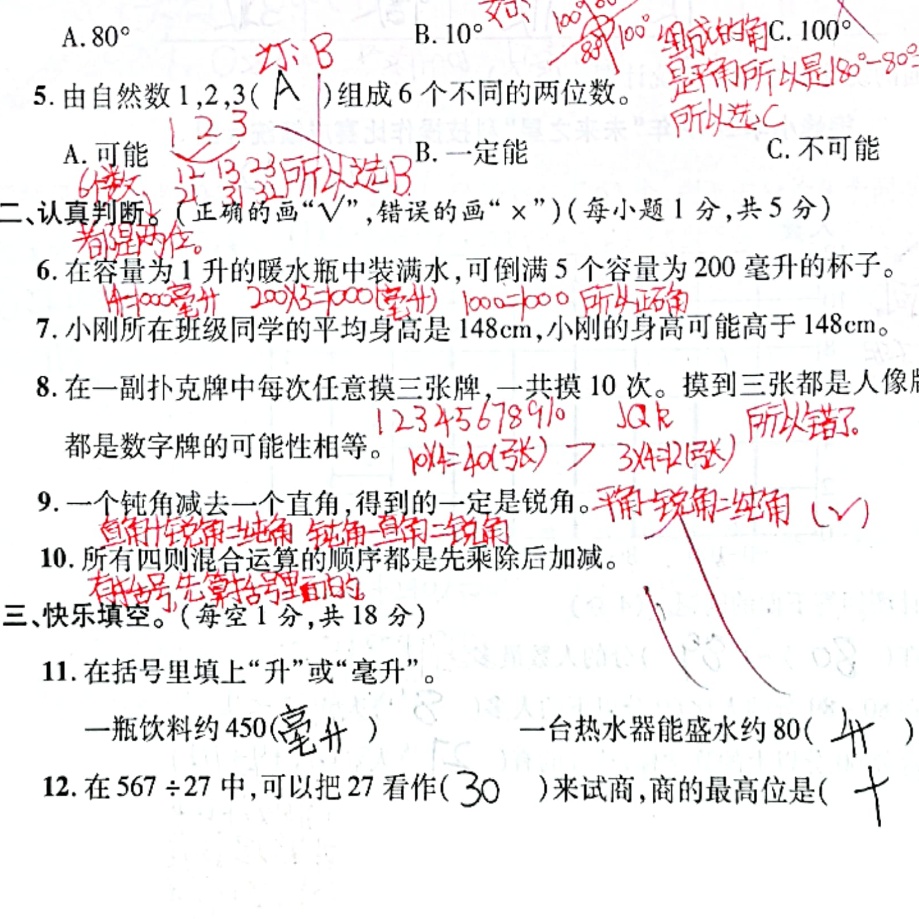 A. 80° B. 10° C. 100°
100° 80° 100° 组成的角
是平角所以是180°-80°
所以选C
B
5. 由自然数 1,2,3( A )组成 6 个不同的两位数。
1 2 3
A. 可能 B. 一定能 C. 不可能
6个数 12 13 23 所以选B
21 31 32
二、认真判断。(正确的画“√”,错误的画“×”)(每小题 1 分,共 5 分)
都是两位。
6. 在容量为 1 升的暖水瓶中装满水,可倒满 5 个容量为 200 毫升的杯子。
1升=1000毫升 200×5=1000(毫升) 1000=1000 所以正确
7. 小刚所在班级同学的平均身高是 148cm,小刚的身高可能高于 148cm。
8. 在一副扑克牌中每次任意摸三张牌,一共摸 10 次。摸到三张都是人像牌
1 2 3 4 5 6 7 8 9 10 JQK 所以错了
都是数字牌的可能性相等。
10×4=40(张) > 3×4=12(张)
9. 一个钝角减去一个直角,得到的一定是锐角。平角-锐角=钝角 (√)
直角+锐角=钝角 钝角-直角=锐角
10. 所有四则混合运算的顺序都是先乘除后加减。
有括号,先算括号里面的
三、快乐填空。(每空 1 分,共 18 分)
11. 在括号里填上“升”或“毫升”。
一瓶饮料约 450(毫升) 一台热水器能盛水约 80( 升 )
12. 在 567÷27 中,可以把 27 看作( 30 )来试商,商的最高位是( 十